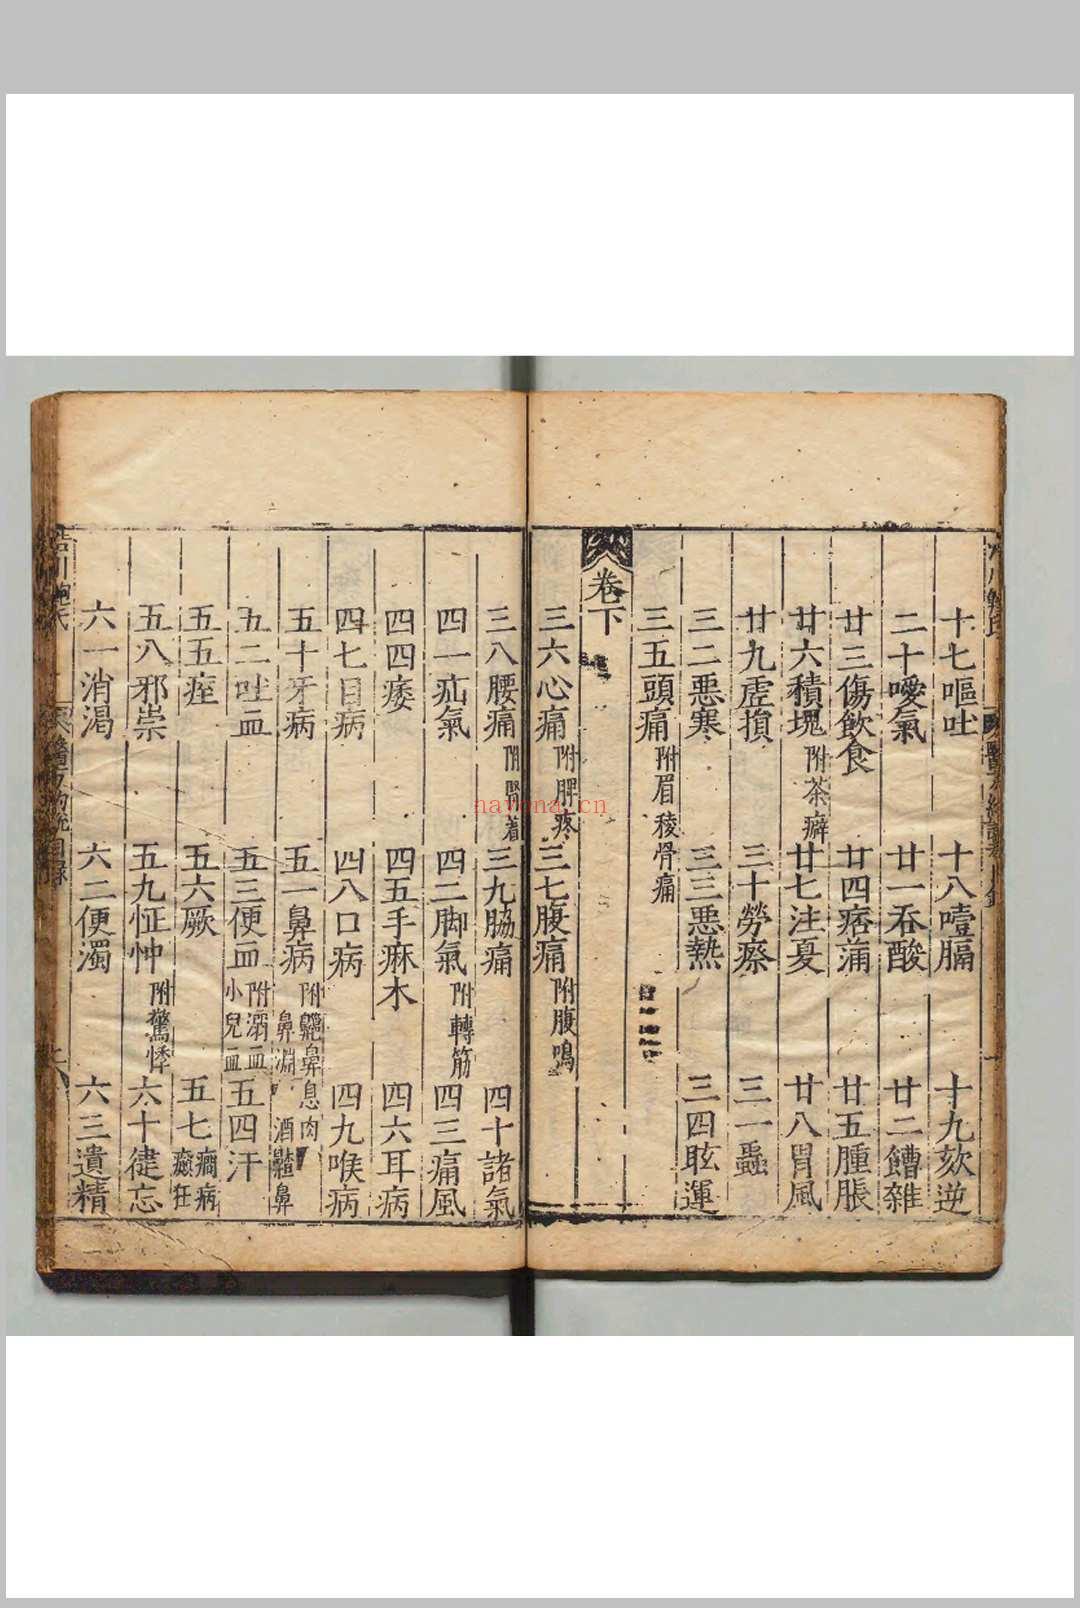 十七嘔吐 十八噎膈 十九欬逆
二十噯氣 廿一吞酸 廿二饋雜
廿三傷飲食 廿四痞蒲 廿五腫脹
廿六積塊 附茶癖 廿七注夏 廿八胃風
廿九虛損 三十勞瘵 三一蟲
三二惡寒 三三惡熱 三四眩運
三五頭痛 附眉稜骨痛
卷下
三六心痛 附脾疼 三七腹痛 附腹鳴
三八腰痛 附腎着 三九脇痛 四十諸氣
四一疝氣 四二脚氣 附轉筋 四三痛風
四四痿 四五手麻木 四六耳病
四七目病 四八口病 四九喉病
五十牙病 五一鼻病 附齆鼻息肉 鼻淵 酒齄鼻
五二吐血 五三便血 附溺血 小兒血 五四汗
五五痓 五六厥 五七癇病 癲狂
五八邪祟 五九怔忡 附驚悸 六十健忘
六一消渴 六二便濁 六三遺精
nayona.cn